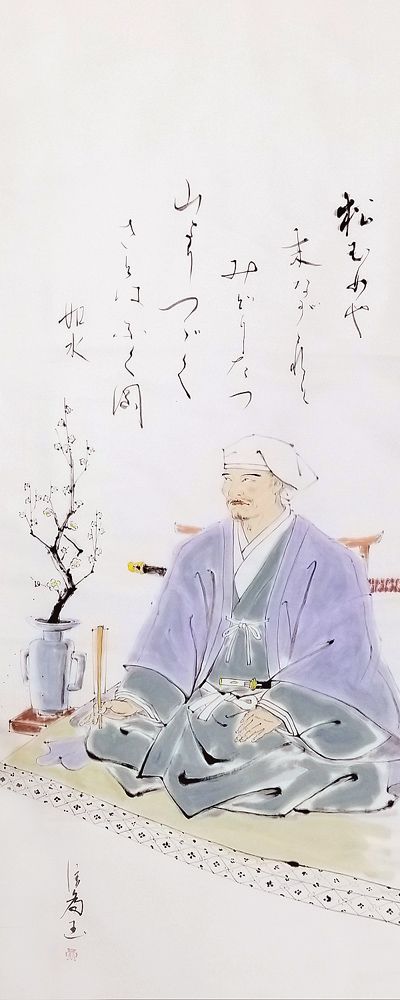 松むめや
末ながかれと
みどりたつ
山よりつゞく
さとはふく岡
如水